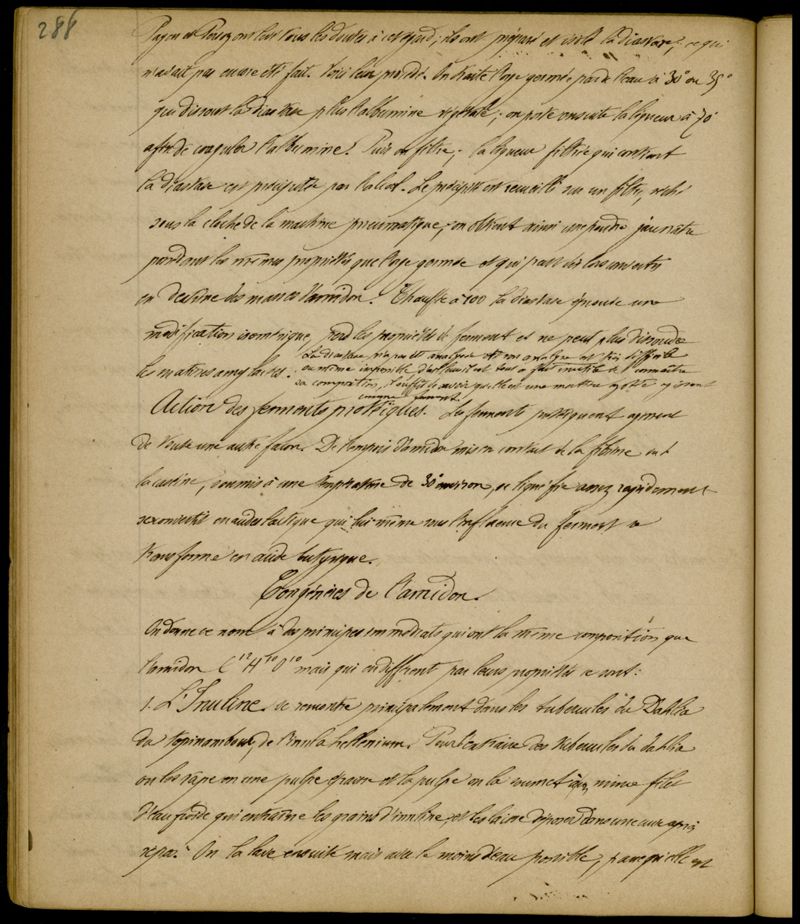 288
Payen et Persoz ont levé tous les doutes à cet égard; ils ont préparé et isolé la diastase, ce qui
n'avait pas encore été fait. Voici leur procédé. On traite l'orge germée par de l'eau à 30° ou 35°
qui dissout la diastase plus l'albumine végétale; on porte ensuite la liqueur à 70°
afin de coaguler l'albumine. Puis on filtre; la liqueur filtrée qui contient
la diastase est précipitée par l'alcool. Le précipité est recueilli sur un filtre, séché
sous la cloche de la machine pneumatique; on obtient ainsi une poudre jaunâtre
possédant les mêmes propriétés que l'orge germée et qui peut dès lors convertir
en dextrine des masses d'amidon. Chauffée à 100 la diastase éprouve une
modification isomérique, perd les propriétés de ferment et ne peut plus dissoudre
les matières amylacées. La diastase n'a pas été analysée et son analyse est très difficile
ou même impossible d'ailleurs il est tout à fait inutile de connaître
sa composition, il suffit de savoir que c'est une matière azotée agissant
comme ferment.
Action des ferments protéiques. Les ferments protéiques agissent
de toute une autre façon. De l'empois d'amidon mis en contact de la fibrine ou de
la caséine, soumis à une température de 30° environ, se liquéfie assez rapidement
se convertit en acide lactique qui lui même sous l'influence du ferment se
transforme en acide butyrique.
Congénères de l'amidon.
On donne ce nom à des principes immédiats qui ont la même composition que
l'amidon C¹²H¹⁰O¹⁰ mais qui en diffèrent par leurs propriétés ce sont:
1. L'Inuline se rencontre principalement dans les tubercules de Dahlia
du topinambour, de l'Inula hellenium. Pour l'extraire des tubercules du dahlia
on les rape en une pulpe épaisse et la pulpe on la soumet à un mince filet
d'eau froide qui entraîne les grains d'inuline et les laisse déposer dans une eau
repos. On la lave ensuite mais avec le moins d'eau possible, parce qu'elle est